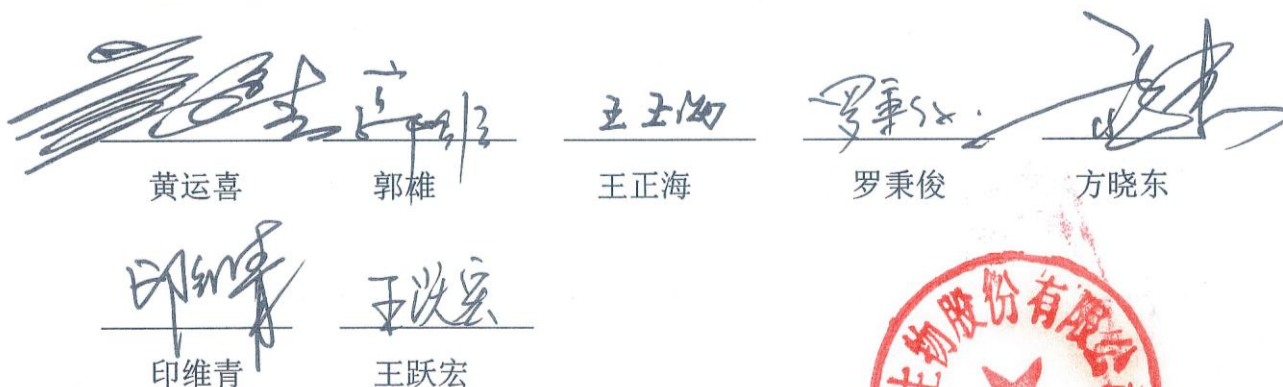 黄运喜 郭雄 王正海 罗秉俊 方晓东
印维青 王跃宏
生物股份有限公